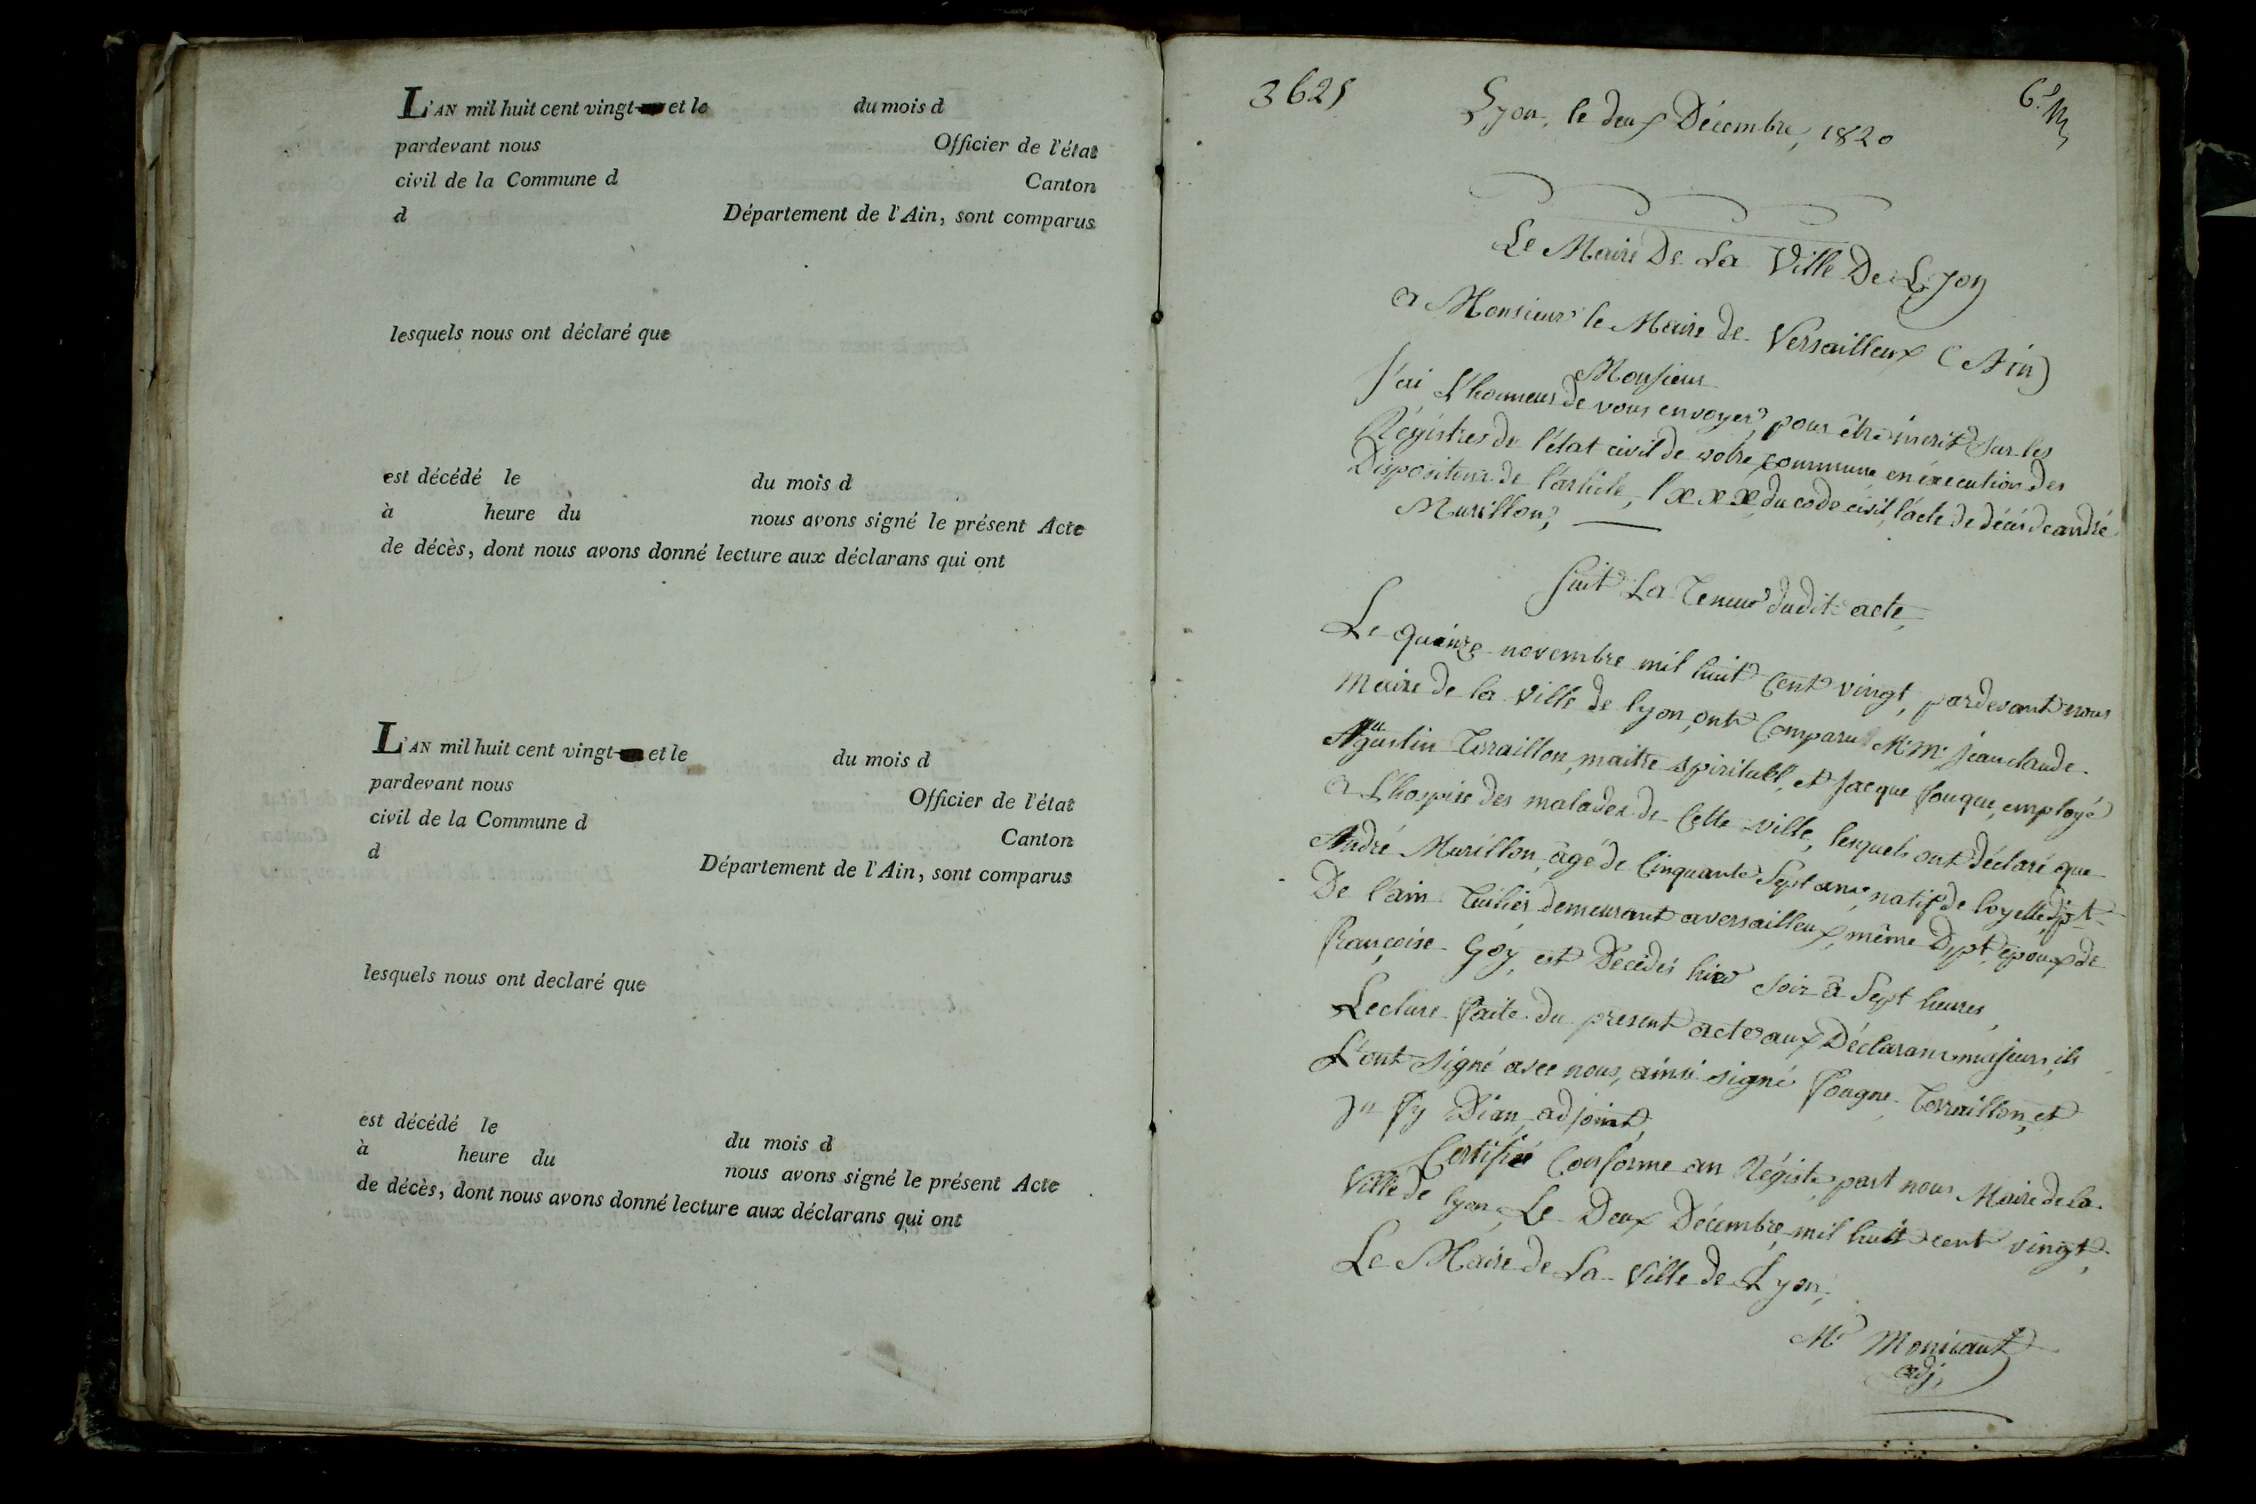 L'AN mil huit cent vingt- et le du mois d
pardevant nous Officier de l'état
civil de la Commune d Canton
d Département de l'Ain, sont comparus
lesquels nous ont déclaré que
est décédé le du mois d
à heure du nous avons signé le présent Acte
de décès, dont nous avons donné lecture aux déclarans qui ont
L'AN mil huit cent vingt- et le du mois d
pardevant nous Officier de l'état
civil de la Commune d Canton
d Département de l'Ain, sont comparus
lesquels nous ont declaré que
est décédé le du mois d
à heure du nous avons signé le présent Acte
de décès, dont nous avons donné lecture aux déclarans qui ont
3621
Lyon, le deux Décembre, 1820
Le Maire De La Ville De Lyon
a Monsieur le Maire de Versailleux (Ain)
Monsieur
J'ai L'honneur de vous envoyer, pour être inscrit sur les
Régistres de l'état civil de votre commune, en éxécution des
Dispositions de l'article, lxxx, du code civil, l'acte de décés de andré
Murillon,
Suit La Teneur dudit acte,
Le quinze novembre mil huit Cent vingt, pardevant nous
Maire de la ville de lyon, ont Comparu, Mr. Mr. Jean claude
Agustin Terraillon, maitre spirituel, et Jacque fouque, employé
a L'hospice des malades de Cette ville, lesquels ont déclaré que
André Murillon, agé de Cinquante Sept ans, natif de loyette, Dpt
De l'ain Tuilier demeurant a versailleux, même Dpt, epoux de
françoise Goy, est Décédés hier soir à Sept heures,
Lecture faite du present acte aux Déclarans majeurs, ils
L'ont signé avec nous, ainsi signé fougne, Terraillon, et
Dian, adjoint,
Certifié Conforme au Régistre, part nous Maire de la
Ville de lyon, Le Deux Décembre mil huit cent vingt,
Le Maire de La Ville de Lyon,
Mr Monicault
adj.